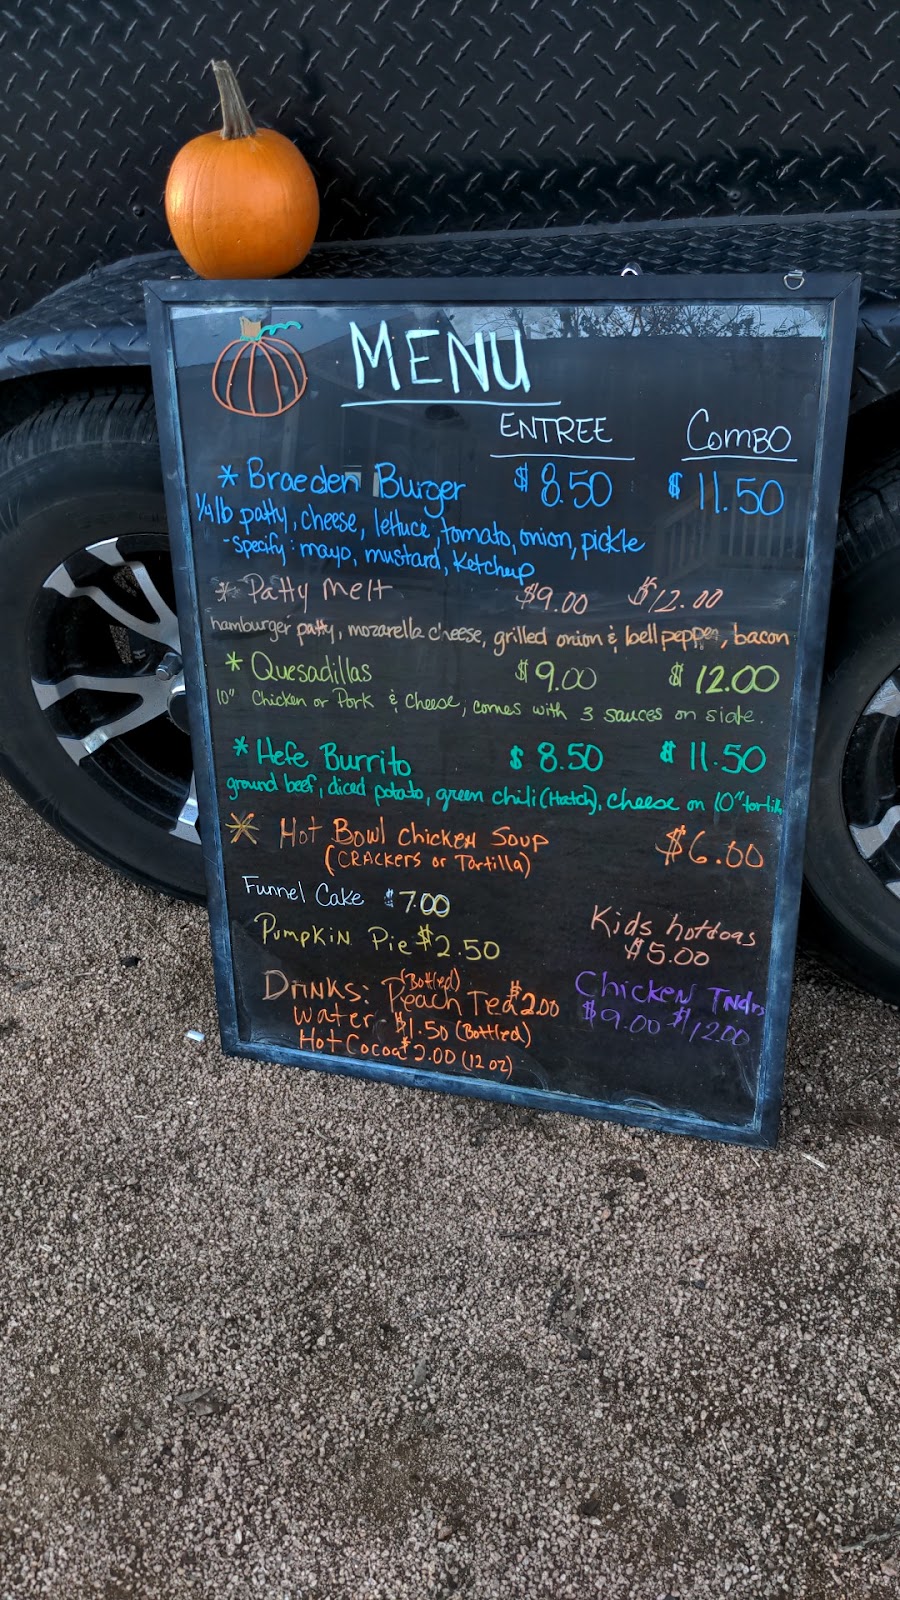 MENU
ENTREE COMBO
* Braeden Burger $8.50 $11.50
1/4 lb patty, cheese, lettuce, tomato, onion, pickle
-specify: mayo, mustard, ketchup
* Patty Melt $9.00 $12.00
hamburger patty, mozarella cheese, grilled onion & bell pepper, bacon
* Quesadillas $9.00 $12.00
10" Chicken or Pork & Cheese, comes with 3 sauces on side.
* Hefe Burrito $8.50 $11.50
ground beef, diced potato, green chili (Hatch), cheese on 10" tortilla
* Hot Bowl Chicken Soup $6.00
(CRACKers or Tortilla)
Funnel Cake $7.00
Pumpkin Pie $2.50
Kids hotdogs
$5.00
Drinks: (Bottled) Peach Tea $2.00
Water $1.50 (Bottled)
Hot Cocoa $2.00 (12 oz)
Chicken Tndrs
$9.00 $12.00